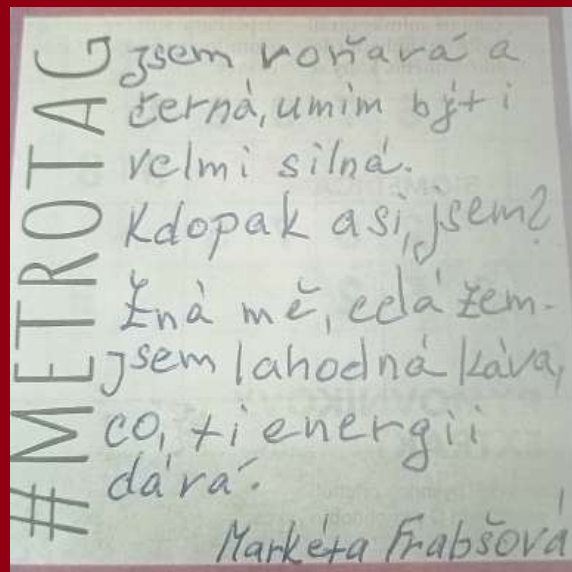 #METROTAG
Jsem voňavá a
černá, umím být i
velmi silná.
Kdopak asi, jsem?
Zná mě, celá zem-
jsem lahodná káva,
co, ti energii
dává.
Markéta Frabšová